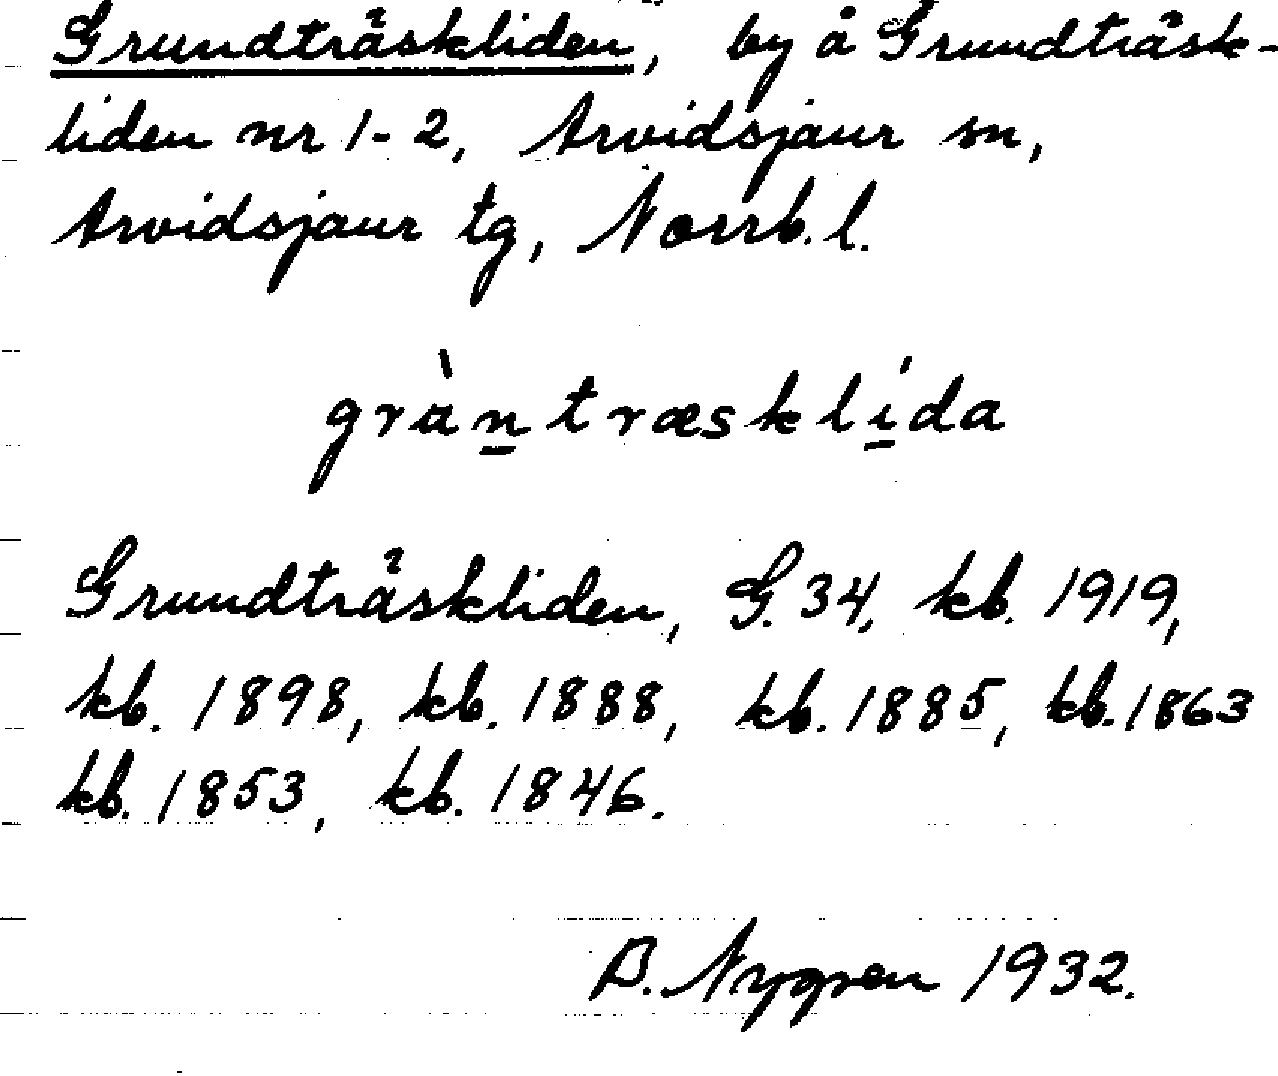 Grundträskliden, by å Grundträsk-
liden nr 1-2, Arvidsjaur sn,
Arvidsjaur tg, Norrb. l.
gràntræsklída
Grundträskliden, G. 34, kb. 1919,
kb. 1898, kb. 1888, kb. 1885, kb. 1863
kb. 1853, kb. 1846.
B. Nygren 1932.